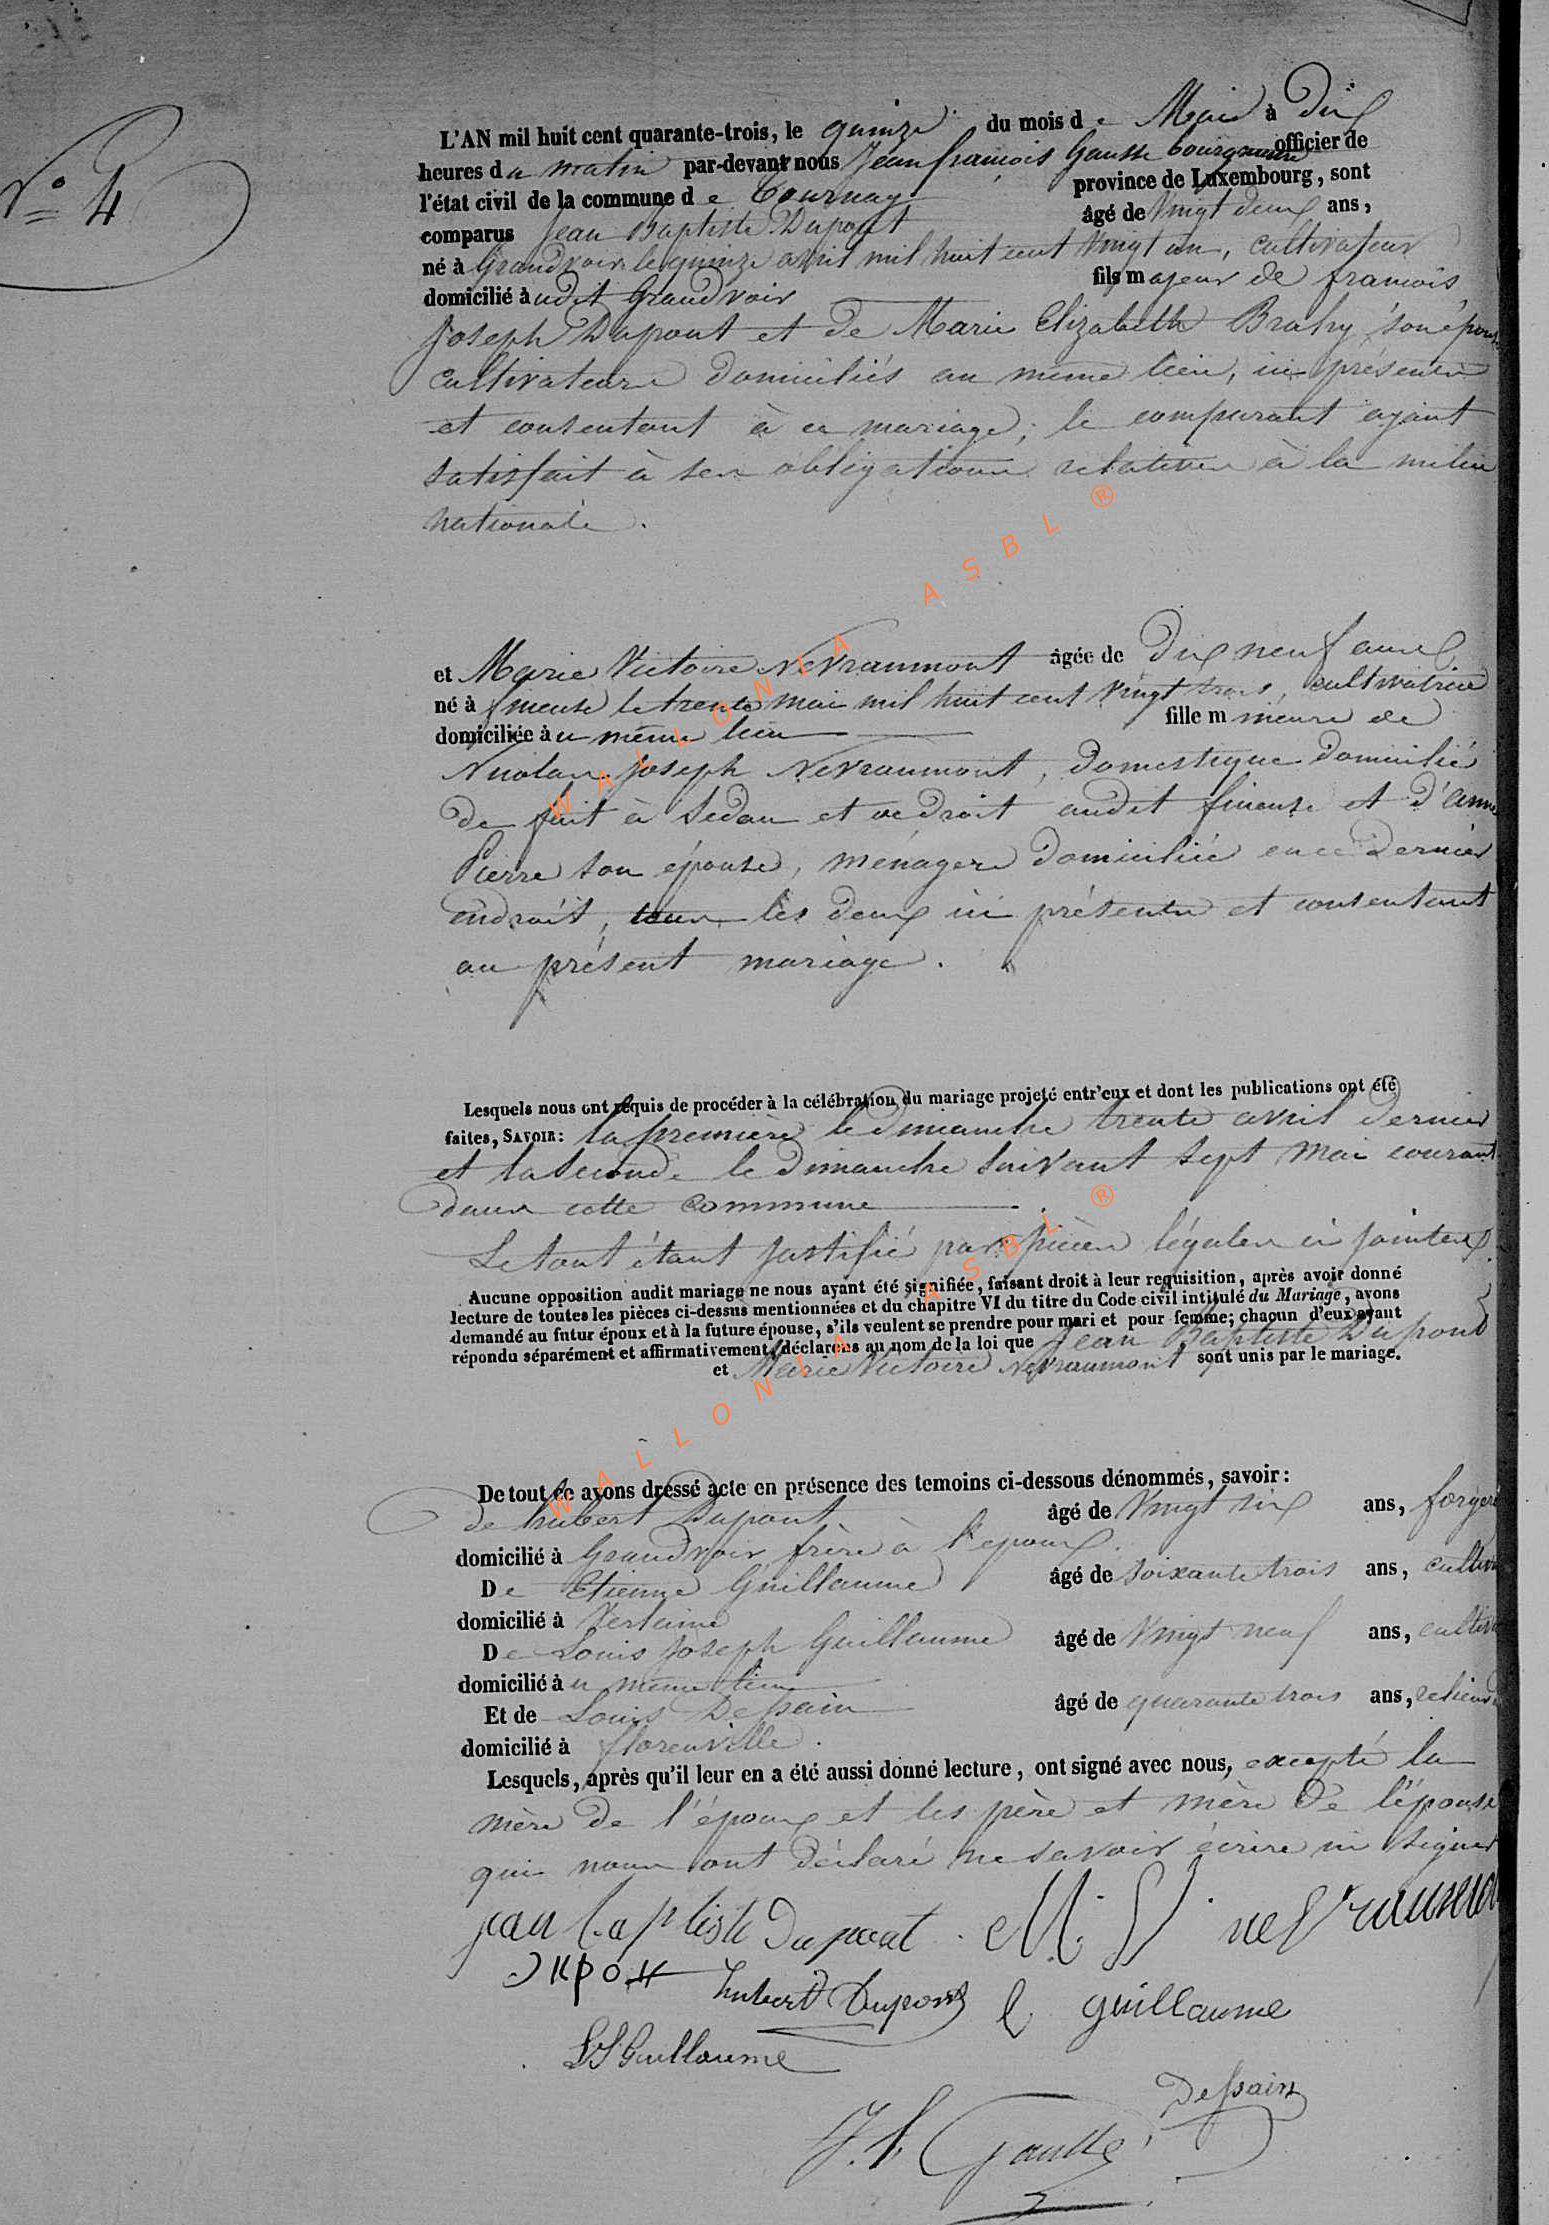 N° 4
L'AN mil huit cent quarante-trois, le quinze du mois de Mai à Dix
heures du matin par-devant nous Jean françois Gausse bourgmestre officier de
l'état civil de la commune de Tournay province de Luxembourg, sont
comparus Jean Baptiste Dupont âgé de Vingt deux ans,
né à Grandvoir le quinze avril mil huit cent Vingt un, cultivateur
domicilié audit Grandvoir fils majeur de francois
Joseph Dupont et de Marie Elizabeth Brahy son épouse
cultivateurs domiciliés au même lieu, ici présents
et consentant à ce mariage; le comparant ayant
satisfait à ses obligations relatives à la milice
nationale.
et Marie Victoire Nevraumont âgée de Dix neuf ans
né à fineuse le trente mai mil huit cent Vingt trois, cultivatrice
domiciliée au même lieu fille mineure de
Nicolas Joseph Nevraumont, domestique domicilié
de fait à Sedan et de droit audit fineuse et d'anne
Pierre son épouse, ménagère domiciliée en ce dernier
endroit, tous les deux ici présents et consentant
au présent mariage.
Lesquels nous ont requis de procéder à la célébration du mariage projeté entr'eux et dont les publications ont été
faites, SAVOIR: la première le dimanche trente avril dernier
et la seconde le dimanche suivant sept Mai courant
dans cette commune
Le tout étant justifié par pièces légales ci jointes.
Aucune opposition audit mariage ne nous ayant été signifiée, faisant droit à leur requisition, après avoir donné
lecture de toutes les pièces ci-dessus mentionnées et du chapitre VI du titre du Code civil intitulé du Mariage, avons
demandé au futur époux et à la future épouse, s'ils veulent se prendre pour mari et pour femme; chacun d'eux ayant
répondu séparément et affirmativement, déclarons au nom de la loi que Jean Baptiste Dupont
et Marie Victoire Nevraumont sont unis par le mariage.
De tout ce avons dressé acte en présence des temoins ci-dessous dénommés, savoir:
De hubert Dupont âgé de Vingt six ans, forger
domicilié à Grandvoir frère à l'epoux.
De Etienne Guillaume âgé de soixante trois ans, cultiv
domicilié à Verlaine
De Louis Joseph Guillaume âgé de Vingt neuf ans, cultiv
domicilié au même lieu
Et de Louis Dessain âgé de quarante trois ans, relieur
domicilié à florenville.
Lesquels, après qu'il leur en a été aussi donné lecture, ont signé avec nous, excepté la
mère de l'époux et les père et mère de l'épouse
qui nous ont déclaré ne savoir écrire ni signer
jean baptiste Dupont M. V. nevraumont
Dupont hubert Dupont E guillaume
LJ Guillaume
Dessain
J. f. Gausse
WALLONIA ASBL ®
WALLONIA ASBL ®